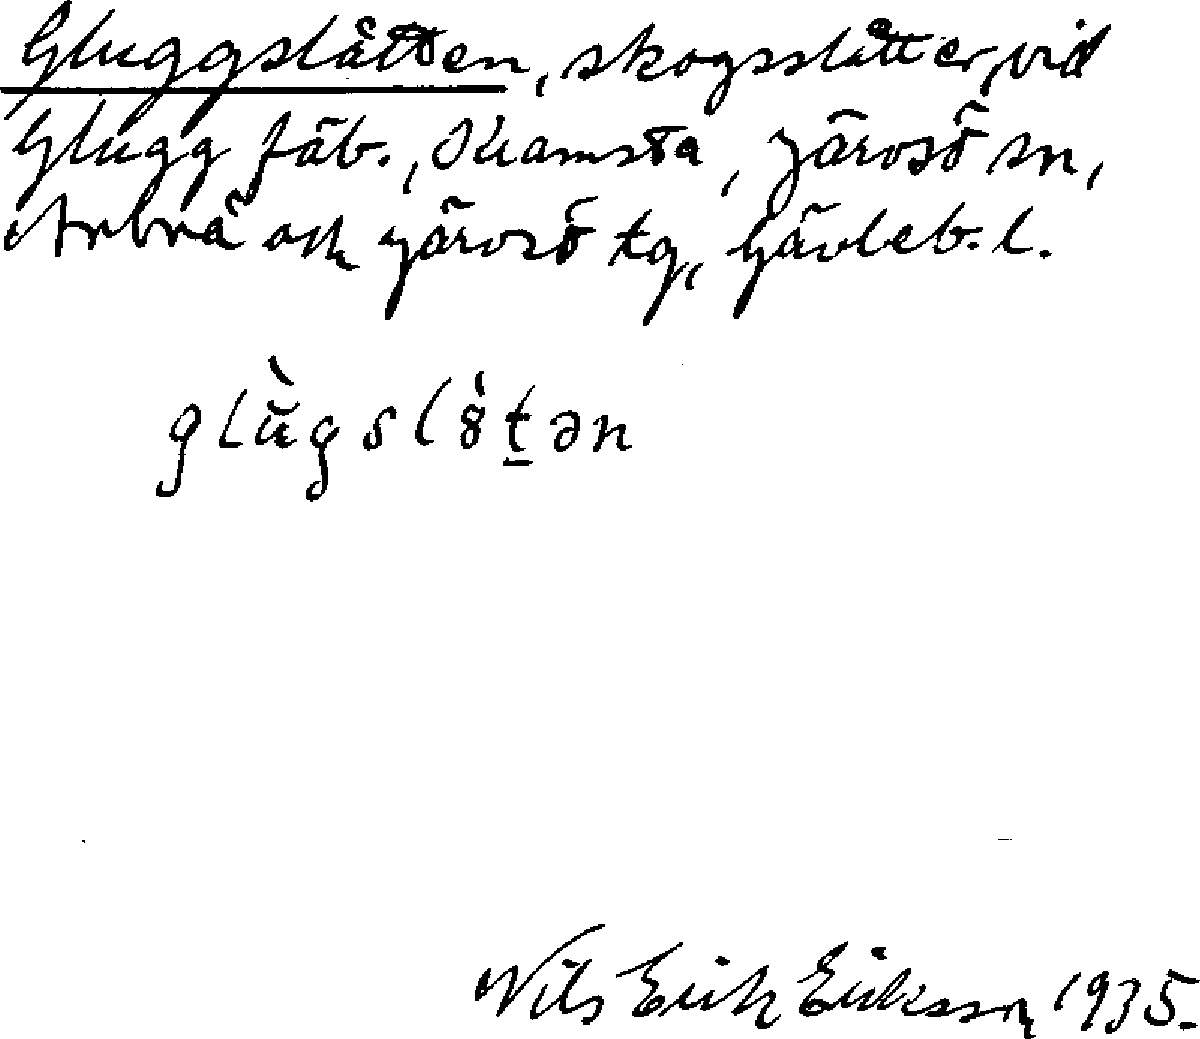 Gluggslåtten, skogsslåtter, vid
Glugg fäb., Kramsta, Järvsö sn,
Arbrå och Järvsö tg, Gävleb. l.
glùgslò̱tən
Nils Erik Eriksson 1935.